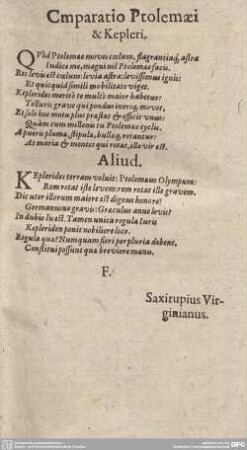 Cmparatio Ptolemæi
& Kepleri.
QVòd Ptolemae moves cœlum, flagrantiaq; astra
Iudice me, magni nil Ptolemae facis.
Res levis est cœlum: levia astra: levissimus ignis:
Et quicquid simili mobilitate viget.
Keplerides meritò te multò maior habetur:
Telluris gravis qui pondus inersq; movet,
Et solo hoc motu plus præstat & efficit unus:
Quàm cum millenis tu Ptolemae cyclis.
A pueris pluma, stipula, bullæq; rotantur:
At maria & montes qui rotat, ille vir est.
Aliud.
KEplerides terram voluit: Ptolemæus Olympum:
Rem rotat iste levem: rem rotat ille gravem.
Dic uter illorum maiore est dignus honore?
Germanusne gravis: Græculus anne levis?
In dubio lis est. Tamen unica regula Iuris
Kepleriden ponit nobiliore loco.
Regula quæ? Numquam fieri per pluria debent,
Constitui possunt quæ breviore manu.
F.
Saxirupius Vir-
ginianus.